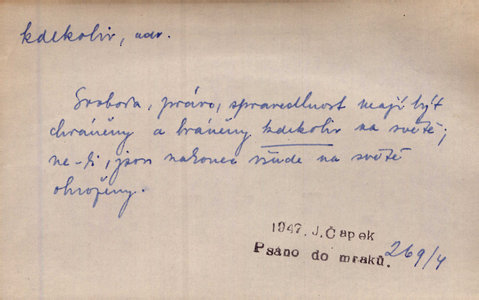 kdekoliv, adv.
Svoboda, právo, spravedlnost mají být
chráněny a bráněny kdekoliv na světě;
ne-li, jsou nakonec všude na světě
ohroženy.
1947. J. Čapek
Psáno do mraků. 269/4